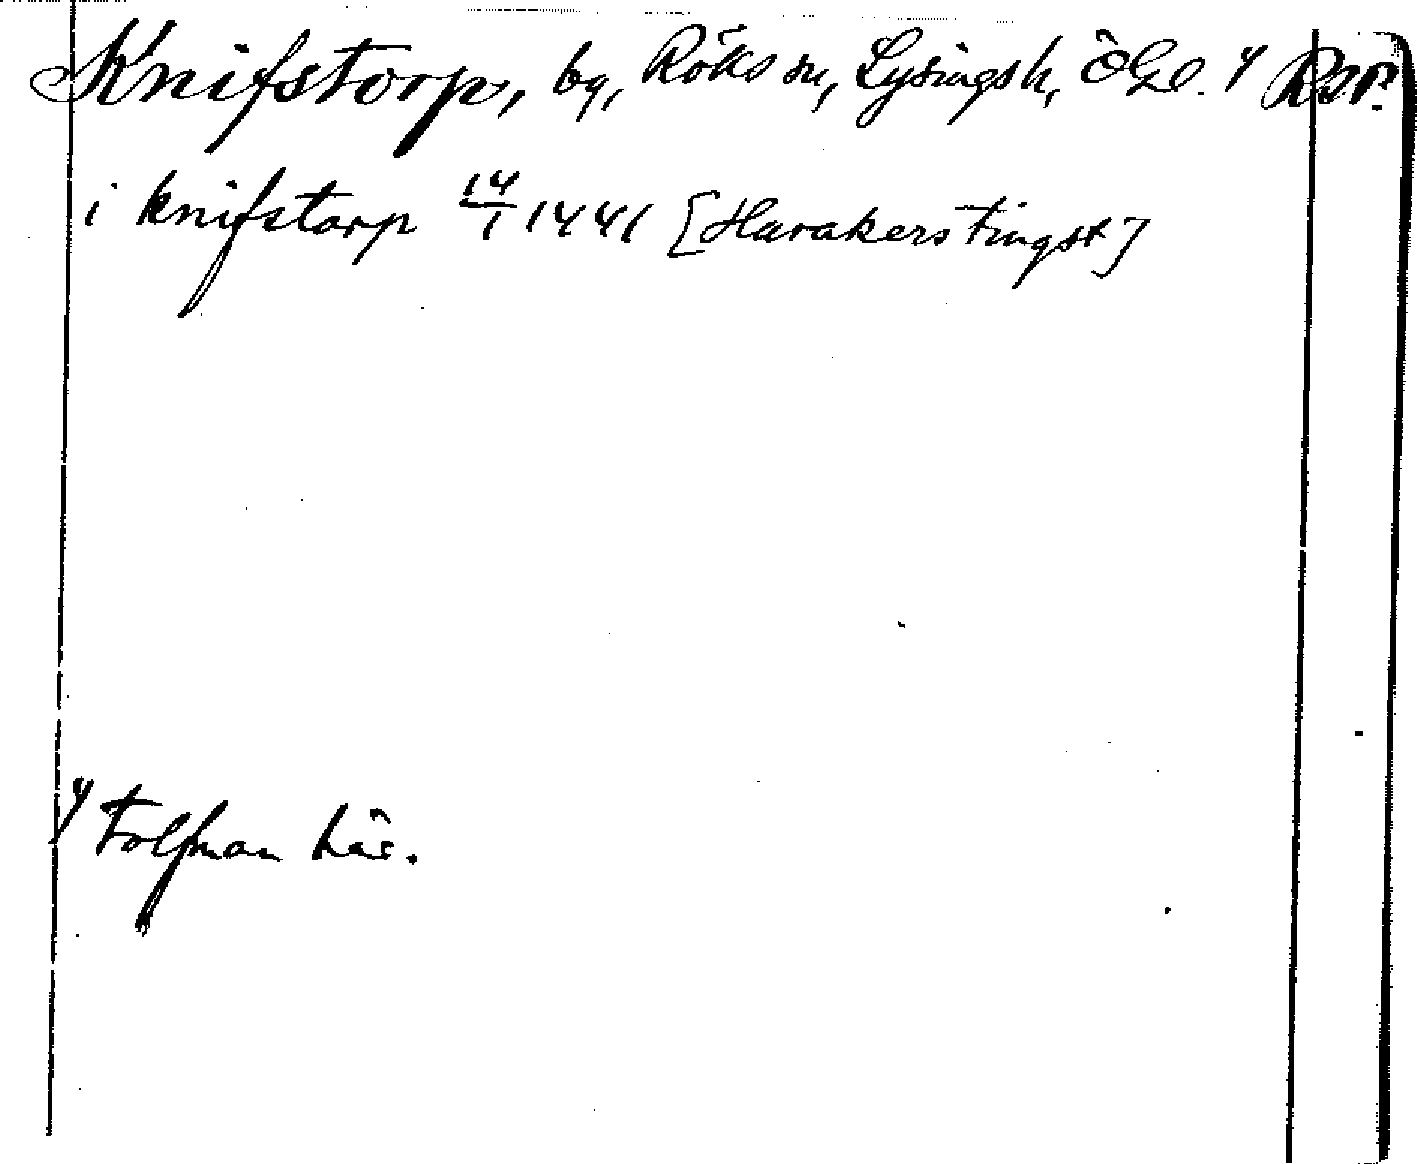 Knifstorp, by, Röks sn, Lysingsh, ÖGl. y Rsp.
i knifstorp 14/1 1441 [Harakers tingst]
y Tolfman här.